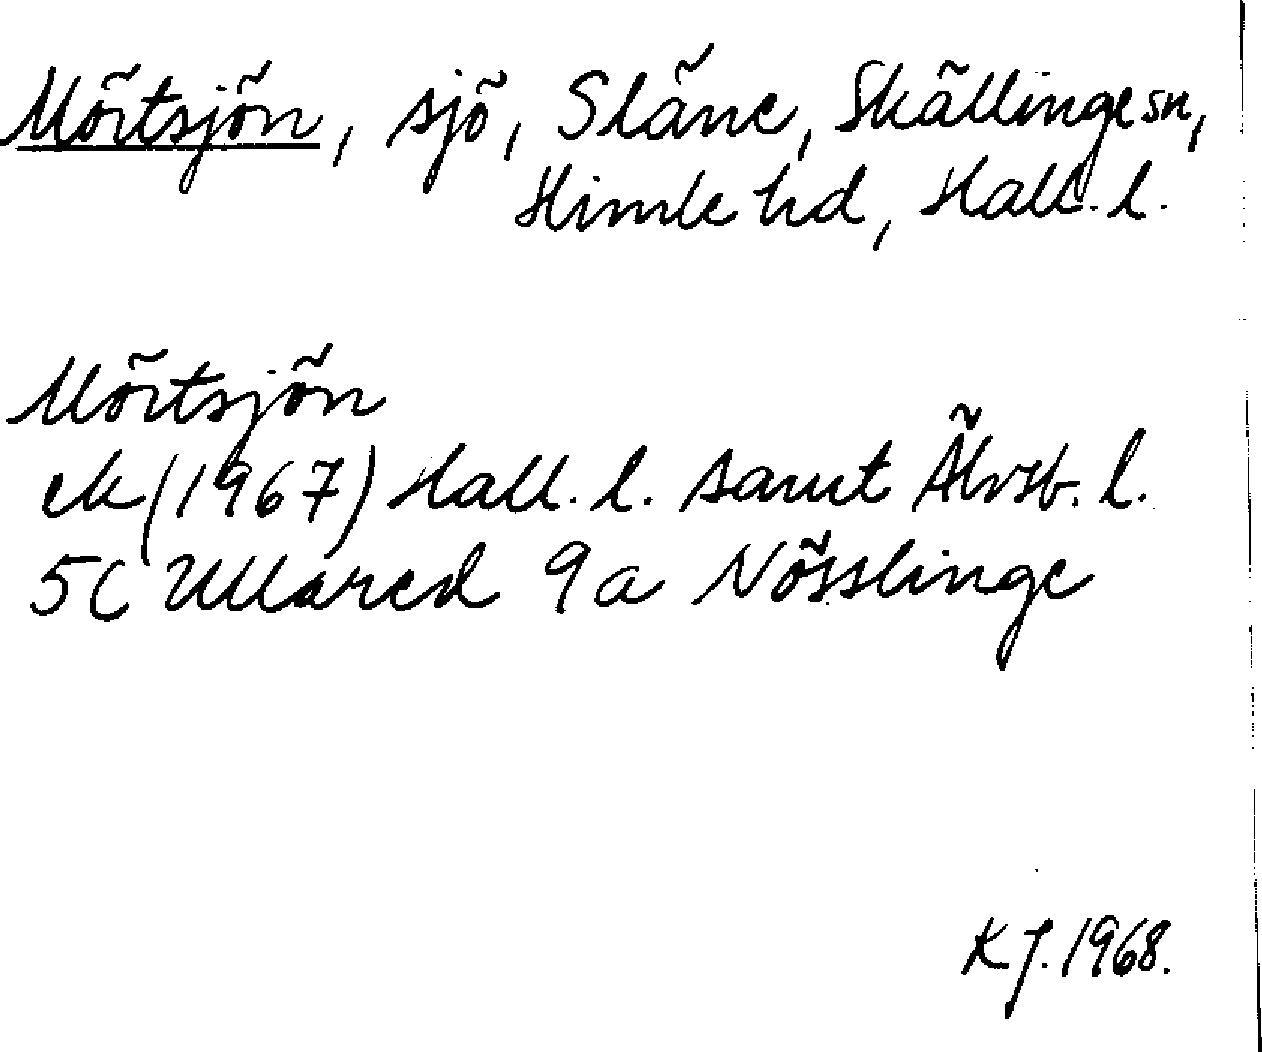 Mörtsjön, sjö, Släne, Skällinge sn,
Himle hd, Hall. l.
Mörtsjön
ek (1967) Hall. l. samt Älvsb. l.
5C Ullared 9a Nösslinge
KJ. 1968.